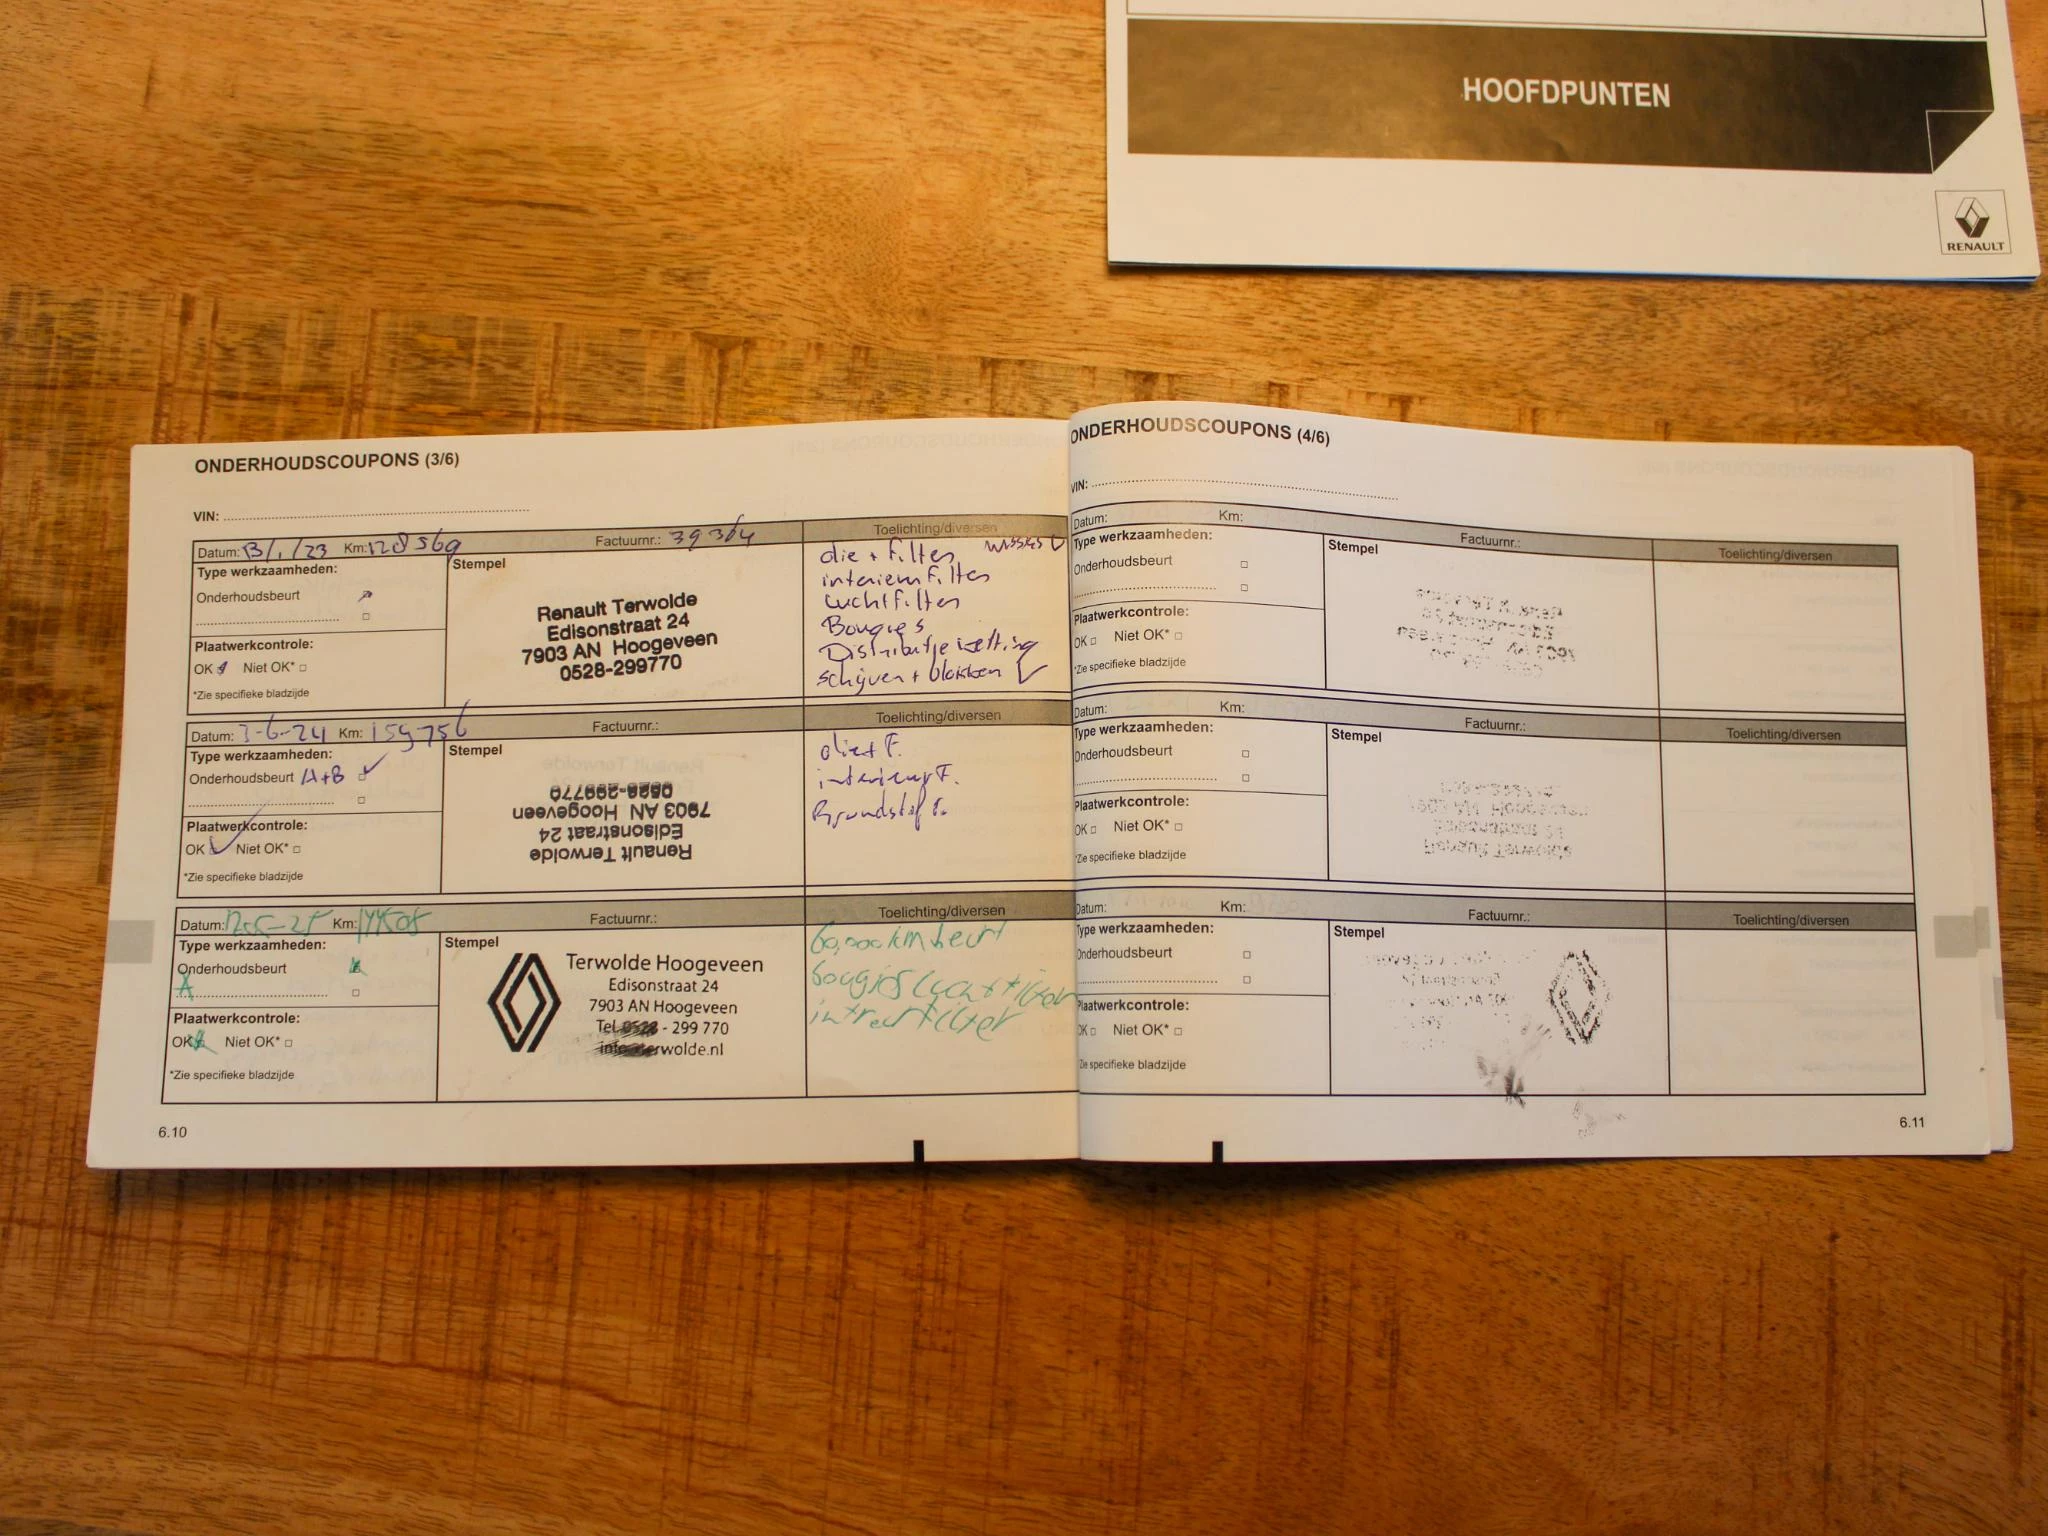 HOOFDPUNTEN
RENAULT
ONDERHOUDSCOUPONS (3/6)
VIN:
Datum: 13/1/23 Km: 128569 Factuurnr.: Toelichting/diversen
Type werkzaamheden:
Onderhoudsbeurt
Plaatwerkcontrole:
OK Niet OK*
*Zie specifieke bladzijde
Stempel
Renault Terwolde
Edisonstraat 24
7903 AN Hoogeveen
0528-299770
olie + filter wissers
interieurfilter
Luchtfilter
Bougies
Distributieketting
schijven + blokken
Datum: 3-6-24 Km: 159756 Factuurnr.: Toelichting/diversen
Type werkzaamheden:
Onderhoudsbeurt A+B
Plaatwerkcontrole:
OK Niet OK*
*Zie specifieke bladzijde
Stempel
Renault Terwolde
Edisonstraat 24
7903 AN Hoogeveen
0528-299770
olie + F.
interieur F.
Brandstof F.
Datum: Km: Factuurnr.: Toelichting/diversen
Type werkzaamheden:
Onderhoudsbeurt
A
Plaatwerkcontrole:
OK Niet OK*
*Zie specifieke bladzijde
Stempel
Terwolde Hoogeveen
Edisonstraat 24
7903 AN Hoogeveen
Tel. - 299 770
60,000km beurt
bougies luchtfilter
6.10
ONDERHOUDSCOUPONS (4/6)
VIN:
Datum: Km: Factuurnr.: Toelichting/diversen
Type werkzaamheden:
Onderhoudsbeurt
Plaatwerkcontrole:
OK Niet OK*
*Zie specifieke bladzijde
Stempel
Datum: Km: Factuurnr.: Toelichting/diversen
Type werkzaamheden:
Onderhoudsbeurt
Plaatwerkcontrole:
OK Niet OK*
*Zie specifieke bladzijde
Stempel
Datum: Km: Factuurnr.: Toelichting/diversen
Type werkzaamheden:
Onderhoudsbeurt
Plaatwerkcontrole:
OK Niet OK*
*Zie specifieke bladzijde
Stempel
6.11